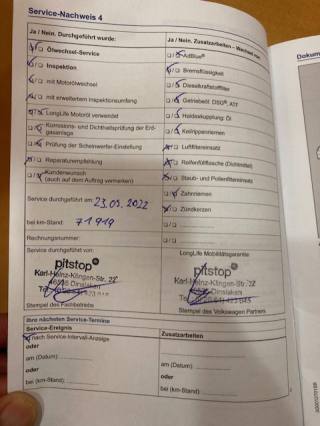 Service-Nachweis 4
Ja / Nein. Durchgeführt wurde:
Ölwechsel-Service
Inspektion
mit Motorölwechsel
mit erweitertem Inspektionsumfang
LongLife Motoröl verwendet
Korrosions- und Dichtheitsprüfung der Erd-
gasanlage
Prüfung der Scheinwerfer-Einstellung
Reparaturempfehlung
Kundenwunsch
(auch auf dem Auftrag vermerken)
Service durchgeführt am: 23.09.2022
bei km-Stand: 71919
Rechnungsnummer:
Service durchgeführt von:
pitstop
Karl-Heinz-Klingen-Str. 22
46539 Dinslaken
Stempel des Fachbetriebs
Ja / Nein. Zusatzarbeiten – Wechsel von:
AdBlue®
Bremsflüssigkeit
Dieselkraftstofffilter
Getriebeöl: DSG®, ATF
Haldexkupplung: Öl
Keilrippenriemen
Luftfiltereinsatz
Reifenfüllflasche (Dichtmittel)
Staub- und Pollenfiltereinsatz
Zahnriemen
Zündkerzen
LongLife Mobilitätsgarantie
pitstop
Karl-Heinz-Klingen-Str. 22
46539 Dinslaken
Stempel des Volkswagen Partners
Ihre nächsten Service-Termine
Service-Ereignis
nach Service-Intervall-Anzeige
oder
am (Datum)
oder
bei (km-Stand)
Zusatzarbeiten
am (Datum)
oder
bei (km-Stand)